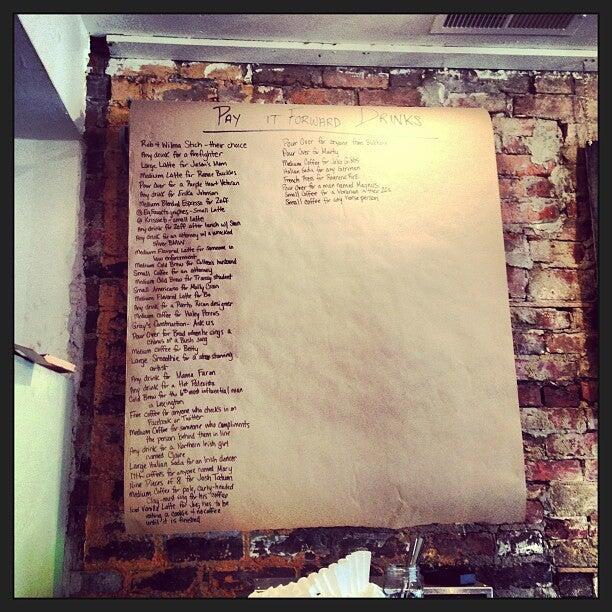 PAY IT FORWARD DRINKS
Rob + Wilma Stich - their choice
Any drink for a firefighter
Large Latte for Jason's Mom
Medium Latte for Ranee Buckles
Pour over for a Purple Heart Veteran
Any drink for Erika Johnson
Medium Blended Espresso for Zeff
Small Latte
@ - small latte
Any drink for Zeff after lunch w/ Sean
Any drink for an attorney w/ a wrecked
silver BMW
Medium Flavored Latte for someone in
law enforcement
Medium Cold Brew for Colleen's husband
Small Coffee for an attorney
Medium Cold Brew for Transy student
Small Americano for Molly Crain
Medium Flavored Latte for Bo
Any drink for a Puerto Rican designer
Medium Coffee for Haley Pennis
Gray's Construction - Ask us
Pour Over for Brad when he sings a
chorus of a Bush song
Medium coffee for Betty
Large Smoothie for a starving
artist
Any drink for Mama Faron
Any drink for a Hot
Cold Brew for the 6th most influential man
in Lexington
Free coffee for anyone who checks in on
Facebook or Twitter
Medium Coffee for someone who compliments
the person behind them in line
Any drink for a Northern Irish girl
named Claire
Large Italian Soda for an Irish dancer
coffees for anyone named Mary
Nine Pieces of 8 for Josh Tatum
Medium Coffee for pale, curly-headed
Clay - must sing for his coffee
Iced Vanilla Latte for Joe, has to be
eating a cookie + no coffee
until it is finished
Pour Over for anyone from
Pour Over for Marty
Medium Coffee for Julia Gibbs
Italian Soda for any
French Press for
Pour Over for a man named Magnus
Small Coffee for a in their 20s
Small coffee for any Horse person